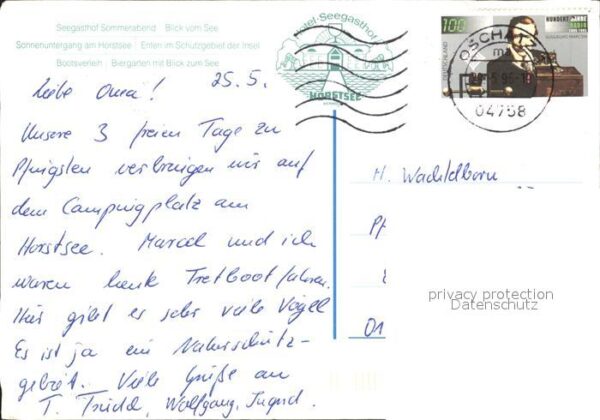 Seegasthof Sommerabend Blick vom See
Sonnenuntergang am Horstsee Enten im Schutzgebiet der Insel
Bootsverleih Biergarten mit Blick zum See
Hotel-Seegasthof
HORSTSEE
100
DEUTSCHLAND
HUNDERT JAHRE
RADIO
OSCHATZ
04758
25.5.
Liebe Oma!
Unsere 3 freien Tage zu
Pfingsten verbringen wir auf
dem Campingplatz am
Horstsee. Marcel und ich
waren heute Tretboot fahren.
Hier gibt es sehr viele Vögel
Es ist ja ein Naturschutz-
gebiet. Viele Grüße an
T. Trudel, Wolfgang, Jugend.
H. Wachtelborn
Pf
01
privacy protection
Datenschutz